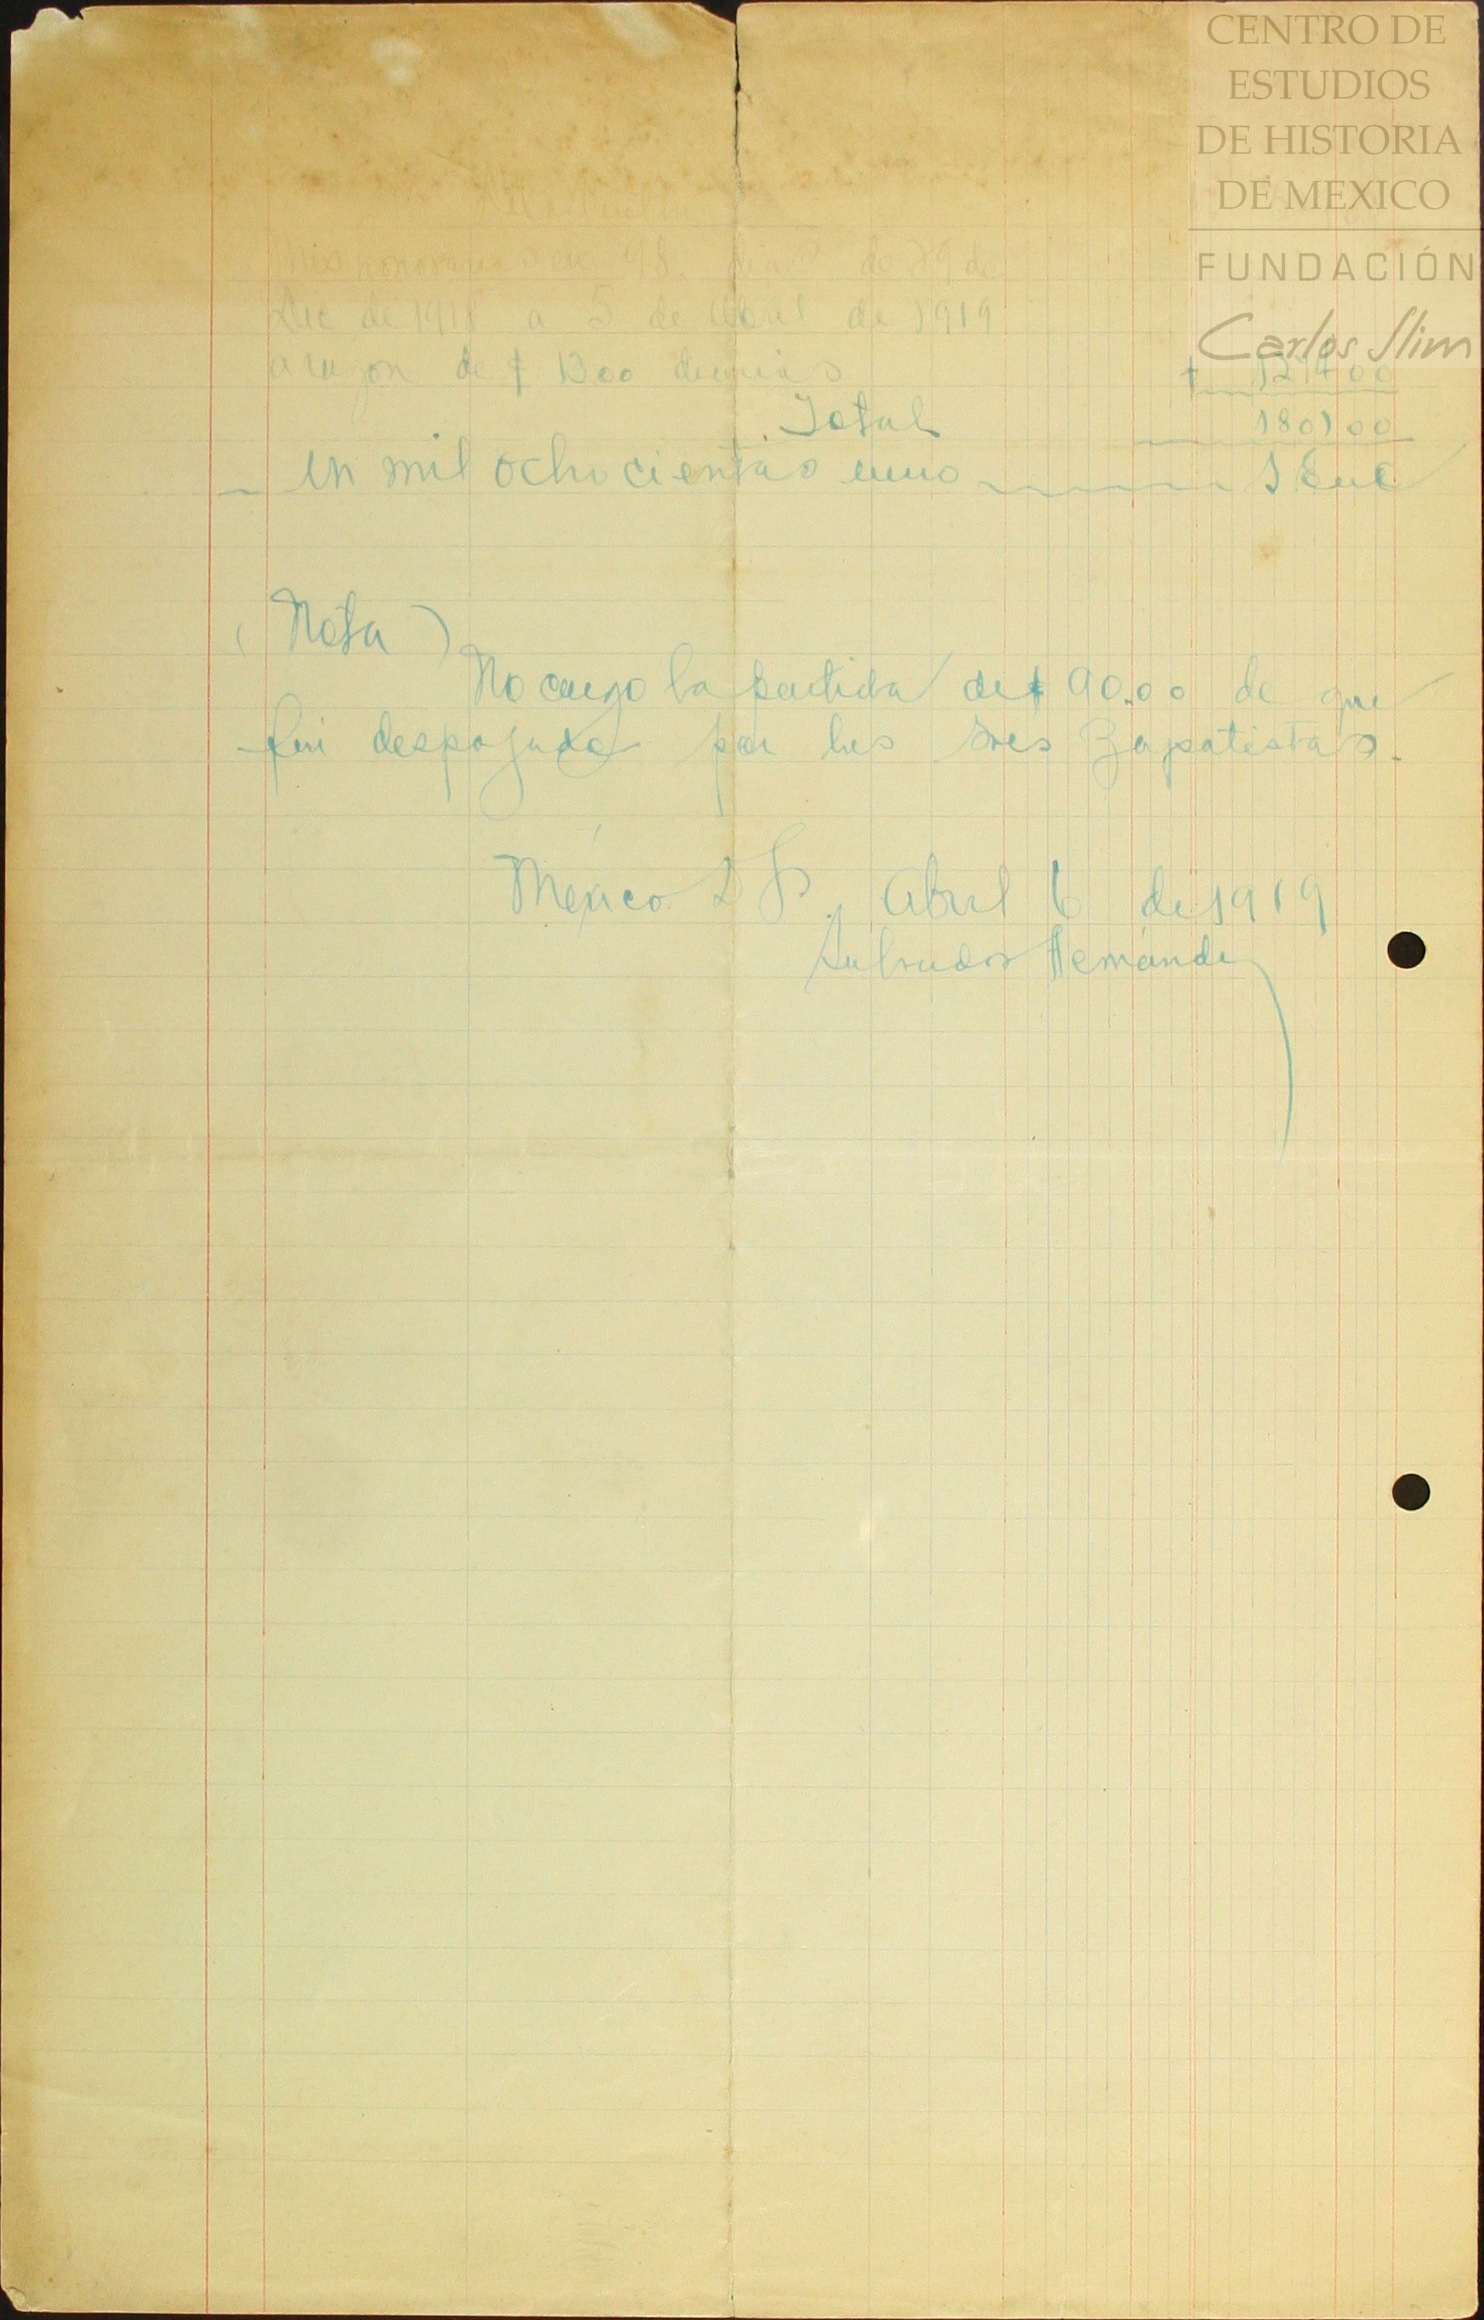 CENTRO DE
ESTUDIOS
DE HISTORIA
DE MEXICO
FUNDACIÓN
Carlos Slim
Mis honorarios en 98 dias de 29 de
Dic de 1918 a 5 de Abril de 1919
a razon de $ 1300 diarios $ 1274 00
Total 1801 00
un mil ochocientos uno
(Nota)
No cargo la partida de $ 90.00 de que
fui despojado por los Sres Zapatistas.
México D F. Abril 6 de 1919
Salvador Hernández